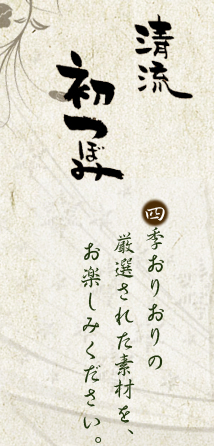 清流
初つぼみ
四季おりおりの
厳選された素材を、
お楽しみください。